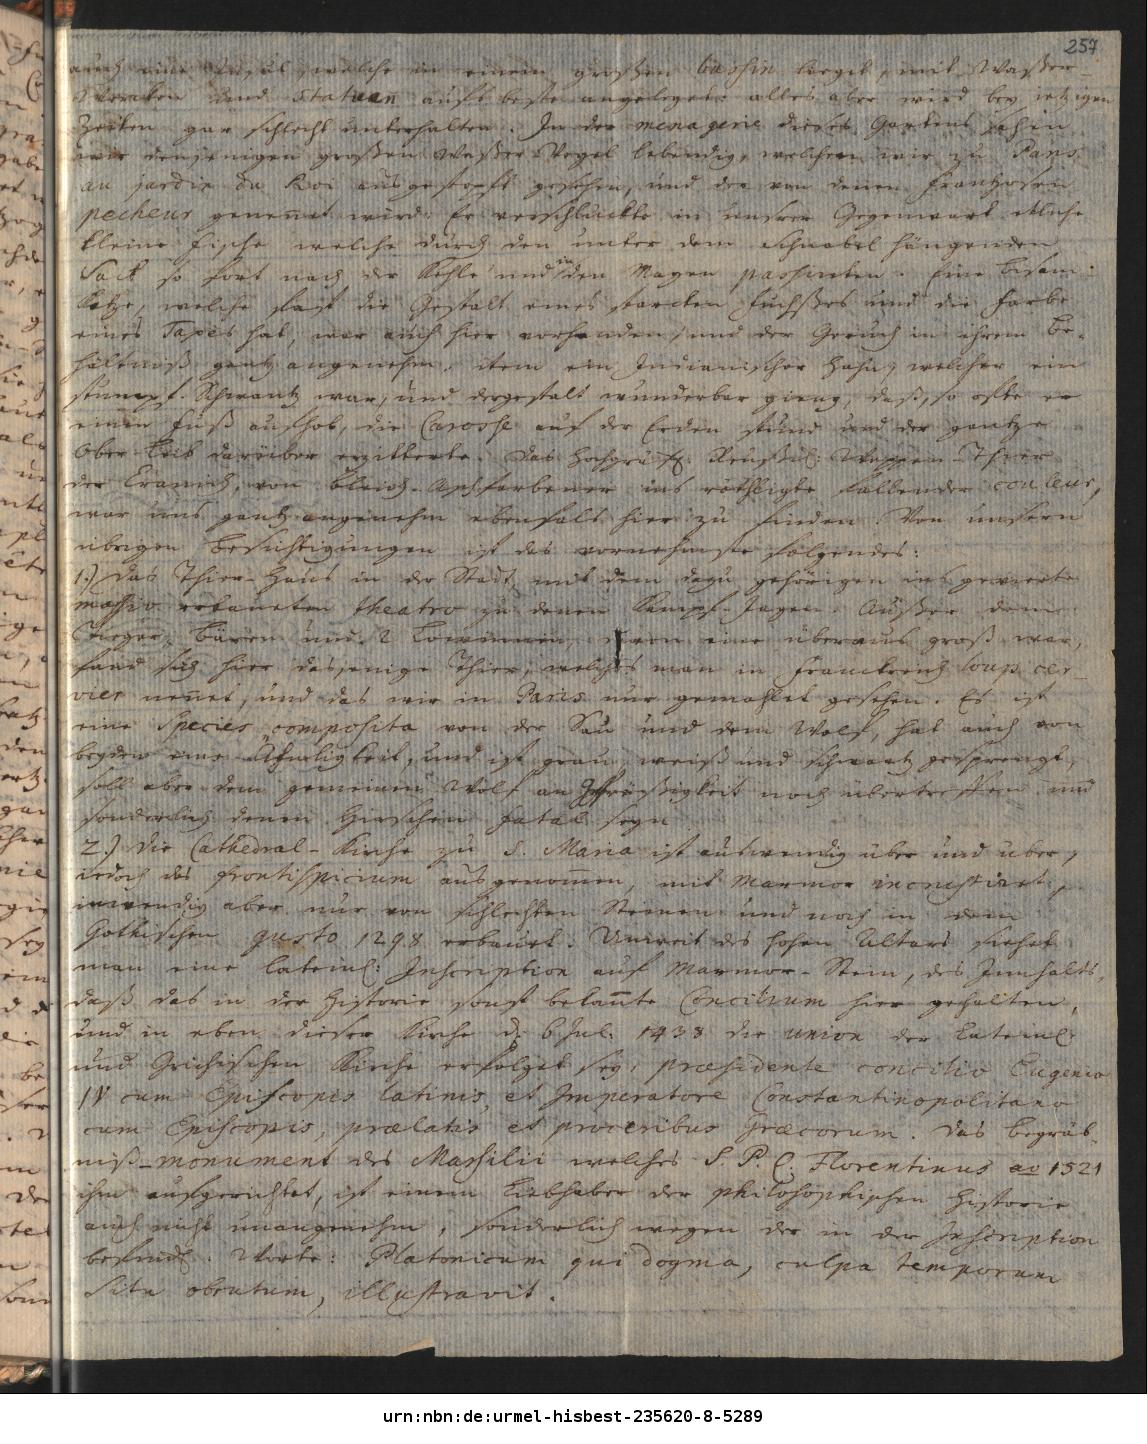 257
auch eine Insul, welche in einem großen bassin lieget, mit Waßer-
Wercken und Statuen aufs beste angeleget: alles aber wird bey jetzigen
Zeiten gar schlecht unterhalten. In der menagerie dieses Gartens sahen
wir denjenigen großen Waßer-Vogel lebendig, welchen wir zu Paris
au jardin du Roi ausgestopft gesehen, und der von denen Frantzosen
pecheur genennet wird. Er verschluckte in unsrer Gegenwart etliche
kleine Fische welche durch den unter dem Schnabel hängenden
Sack so fort nach der Kehle und in den Magen passireten. Eine Bisam-
Katze, welche fast die Gestalt eines starcken Fuchses und die Farbe
eines Taxes hat, war auch hier vorhanden, und der Geruch in ihrem Be-
hältniß gantz angenehm, item ein Indianischer Hahn, welcher ein
stumpf-Schwantz war, und dergestalt wunderbar gieng, daß, so offte er
einen Fuß aufhob, die auf der Erden stund und der gantze
Ober-Leib darüber erzitterte. Das Hochgräfl. Reußisch: Wappen-Thier
der Cranich, von bleich-Aschfarbener ins röthligte fallender couleur,
war uns gantz angenehm ebenfals hier zu finden. Von unsern
übrigen Besichtigungen ist das vornehmste folgendes:
1.) Das Thier-Haus in der Stadt mit dem dazu gehörigen ins gevierte
massiv erbaueten theatro zu denen Kampf-Jagen. Außer dem
Tieger, Bären und 2 Löwinnen, deren eine überaus groß war,
fand sich hier dasjenige Thier, welches man in Franckreich loup cer-
vier nennet, und das wir in Paris nur gemahlet gesehen. Es ist
eine Species composita von der Sau und dem Wolf, hat auch von
beyden eine Ähnligkeit, und ist grau, weiß und schwartz gesprengt,
soll aber dem gemeinen Wolf an Gefräßigkeit noch übertreffen und
sonderlich denen Hirschen fatal seyn.
2.) Die Cathedral-Kirche zu S. Maria ist auswendig über und über,
jedoch das frontispicium ausgenommen, mit Marmor incrustiret,
inwendig aber nur von schlechten Steinen und noch in dem
Gothischen gusto 1298 erbauet. Unweit des hohen Altars siehet
man eine lateinl: Inscription auf Marmor-Stein, des Innhalts,
daß das in der Historie sonst bekannte Concilium hier gehalten,
und in eben dieser Kirche d. 6 Jul. 1438 die union der lateinl.
und Grichischen Kirche erfolget sey, præsidente concilio Eugenio
IV cum Episcopis latinis, et Imperatore Constantinopolitano
cum Episcopis, prælatis et proceribus Græcorum. Das Begräb-
niß-monument des Marsilii welches S. P. Q. Florentinus ao 1521
ihm aufgerichtet, ist einem Liebhaber der philosophischen Historie
auch nicht unangenehm, sonderlich wegen der in der Inscription
befindl. Worte: Platonicum qui dogma, culpa temporum
situ obrutum, illustravit.
urn:nbn:de:urmel-hisbest-235620-8-5289